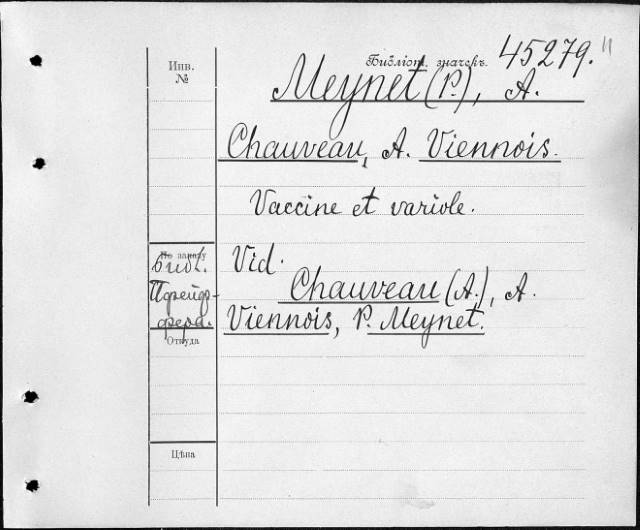 Инв. №
Библіот. значекъ. 45279.
Meynet (P.), A.
Chauveau, A. Viennois.
Vaccine et variole.
По заказу
Библ.
Пфейф-
фера.
Vid.
Chauveau (A.), A.
Viennois, P. Meynet.
Откуда
Цѣна